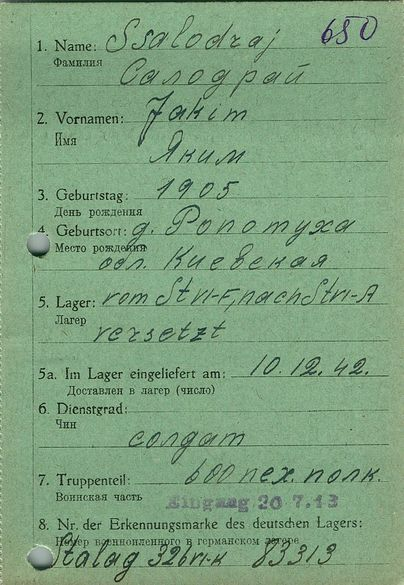 650
1. Name: Ssalodraj
Фамилия
Салодрай
2. Vornamen: Jakim
Имя
Яким
3. Geburtstag: 1905
День рождения
4. Geburtsort: д. Ропотуха
Место рождения
обл. Киевская
5. Lager: vom Stri-F, nach Stri-A
Лагер
versetzt
5a. Im Lager eingeliefert am: 10.12.42.
Доставлен в лагер (число)
6. Dienstgrad:
Чин
солдат
7. Truppenteil: 600 пех. полк.
Воинская часть
Eingang 20 7.43
8. Nr. der Erkennungsmarke des deutschen Lagers:
Номер военнопленного в германском лагере
Stalag 326 VI-K 83313